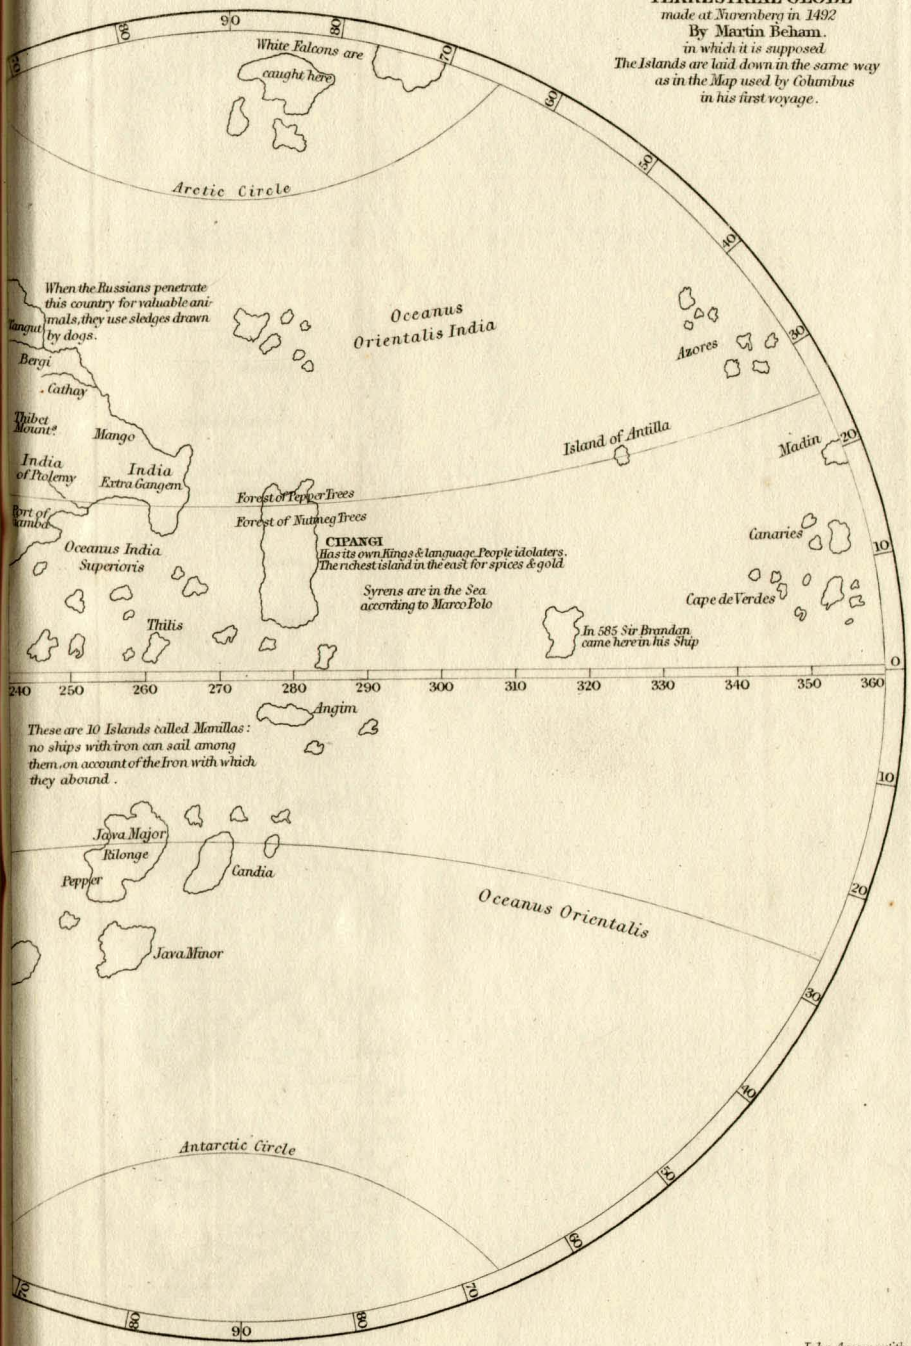 TERRESTRIAL GLOBE
made at Nuremberg in 1492
By Martin Beham.
in which it is supposed
The Islands are laid down in the same way
as in the Map used by Columbus
in his first voyage.
70
80
90
80
70
60
50
40
30
20
10
0
10
20
30
40
50
60
70
80
90
80
70
White Falcons are
caught here
Arctic Circle
When the Russians penetrate
this country for valuable ani-
mals, they use sledges drawn
by dogs.
Tangut
Bergi
Cathay
Thibet
Mount.s
Mango
India
of Ptolemy
India
Extra Gangem
Port of
Oceanus India
Superioris
Thilis
Oceanus
Orientalis India
Azores
Island of Antilla
Madin
Canaries
Cape de Verdes
Forest of Pepper Trees
Forest of Nutmeg Trees
CIPANGI
Has its own Kings & language People idolaters.
The richest island in the east for spices & gold
Syrens are in the Sea
according to Marco Polo
In 585 Sir Brandan
came here in his Ship
240 250 260 270 280 290 300 310 320 330 340 350 360
Angim
These are 10 Islands called Manillas:
no ships with iron can sail among
them, on account of the Iron with which
they abound.
Java Major
Rilonge
Pepper
Candia
Java Minor
Oceanus Orientalis
Antarctic Circle